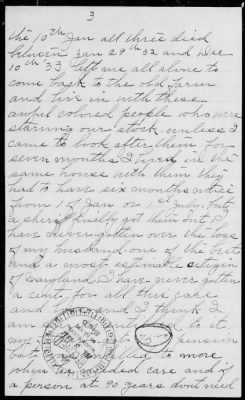 3
the 10th Jan all three died
between Jan 29th 32 and Dec
10th 33 left me all alone to
come back to the old farm
and live in with these
awful colored people who were
starving our stock unless I
came to look after them for
seven months I lived in the
same house with them they
had to have six months notice
from 1 of Jan or 1st July but
a sheriff finally got them out I
have never gotten over the loss
of my husband one of the best
and a most estimable citizen
of Maryland I have never gotten
a cent for all this care
and I think I
am to it
my pension
both to more
when needed care and if
a person at 90 years dont need